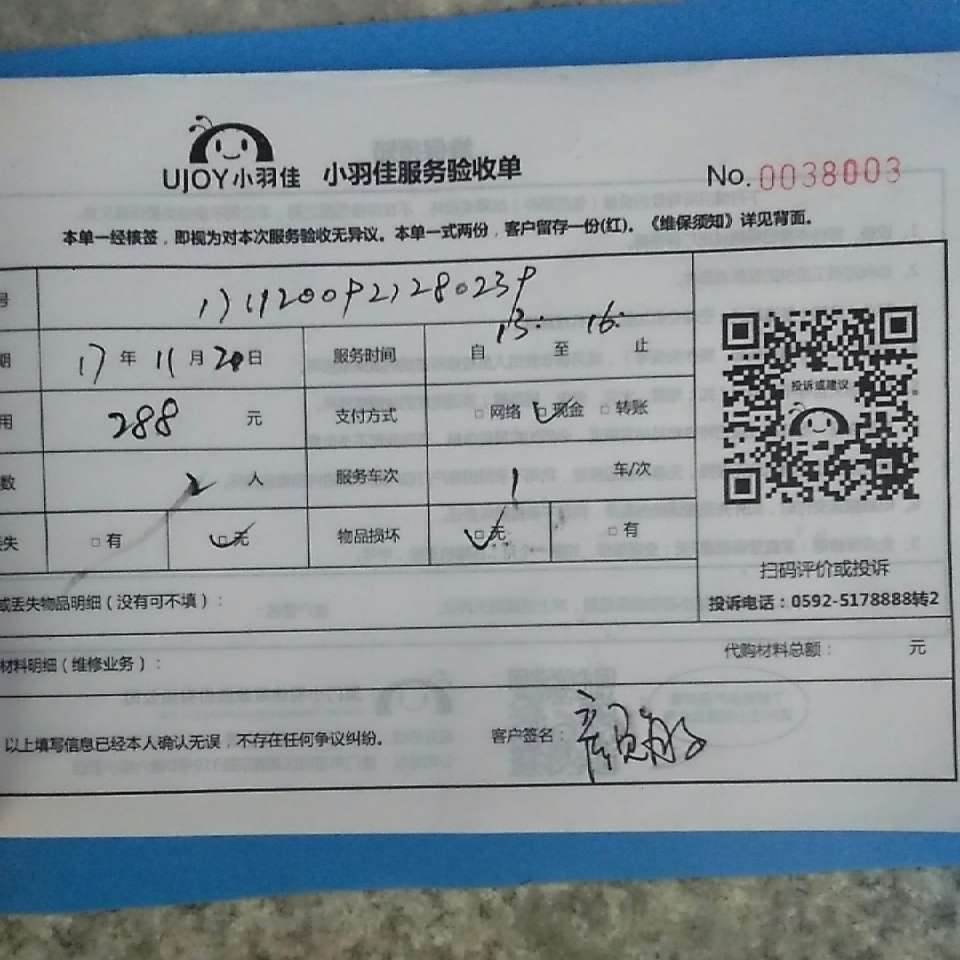 UJOY小羽佳 小羽佳服务验收单 No.0038003
本单一经核签，即视为对本次服务验收无异议。本单一式两份，客户留存一份(红)。《维保须知》详见背面。
号
期 17年11月20日 服务时间 自13:至16:止
用 288元 支付方式 □网络 □现金 □转账
数 2人 服务车次 1车/次
丢失 □有 □无 物品损坏 □无 □有
投诉或建议
扫码评价或投诉
或丢失物品明细（没有可不填）：
投诉电话：0592-5178888转2
材料明细（维修业务）： 代购材料总额： 元
以上填写信息已经本人确认无误，不存在任何争议纠纷。 客户签名：